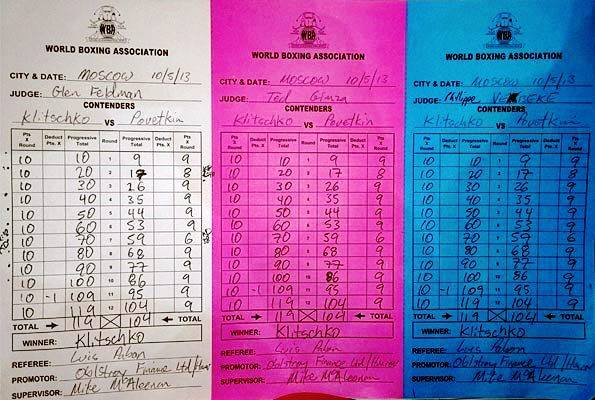 WBA
WORLD BOXING ASSOCIATION
CITY & DATE: Moscow 10/5/13
JUDGE: Glen Feldman
CONTENDERS
Klitschko VS Povetkin
Pts X Round Deduct Pts. X Progressive Total Round Progressive Total Deduct Pts. X Pts X Round
10 10 1 9 9
10 20 2 17 8
10 30 3 26 9
10 40 4 35 9
10 50 5 44 9
10 60 6 53 9
10 70 7 59 6
10 80 8 68 9
10 90 9 77 9
10 100 10 86 9
10 -1 109 11 95 9
10 119 12 104 9
TOTAL 119 104 TOTAL
WINNER: Klitschko
REFEREE: Luis Pabon
PROMOTOR: Oblstroy Finance Ltd/
SUPERVISOR: Mike McAleenan
WBA
WORLD BOXING ASSOCIATION
CITY & DATE: Moscow 10/5/13
JUDGE: Ted Gimza
CONTENDERS
Klitschko VS Povetkin
Pts X Round Deduct Pts. X Progressive Total Round Progressive Total Deduct Pts. X Pts X Round
10 10 1 9 9
10 20 2 17 8
10 30 3 26 9
10 40 4 35 9
10 50 5 44 9
10 60 6 53 9
10 70 7 59 6
10 80 8 68 9
10 90 9 77 9
10 100 10 86 9
10 -1 109 11 95 9
10 119 12 104 9
TOTAL 119 104 TOTAL
WINNER: Klitschko
REFEREE: Luis Pabon
PROMOTOR: Oblstroy Finance Ltd/
SUPERVISOR: Mike McAleenan
WBA
WORLD BOXING ASSOCIATION
CITY & DATE: Moscow 10/5/13
JUDGE: Philippe
CONTENDERS
Klitschko VS Povetkin
Pts X Round Deduct Pts. X Progressive Total Round Progressive Total Deduct Pts. X Pts X Round
10 10 1 9 9
10 20 2 17 8
10 30 3 26 9
10 40 4 35 9
10 50 5 44 9
10 60 6 53 9
10 70 7 59 6
10 80 8 68 9
10 90 9 77 9
10 100 10 86 9
10 -1 109 11 95 9
10 119 12 104 9
TOTAL 119 104 TOTAL
WINNER: Klitschko
REFEREE: Luis Pabon
PROMOTOR: Oblstroy Finance Ltd/
SUPERVISOR: Mike McAleenan